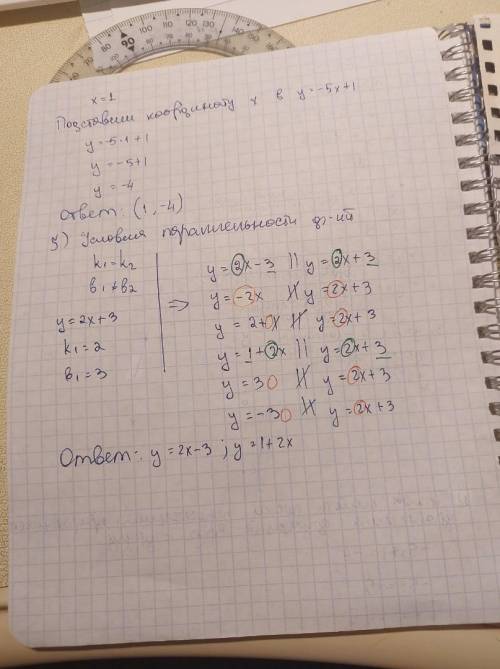 x=1
Подставим координату x в y=-5x+1
y=-5·1+1
y=-5+1
y=-4
Ответ: (1,-4)
5) Условия параллельности ф-ий
k₁=k₂
в₁≠в₂
y=2x+3
k₁=2
в₁=3
=>
y=2x-3 || y=2x+3
y=-2x ∦ y=2x+3
y=2+x ∦ y=2x+3
y=1+2x || y=2x+3
y=30 ∦ y=2x+3
y=-30 ∦ y=2x+3
Ответ: y=2x-3; y=1+2x
90